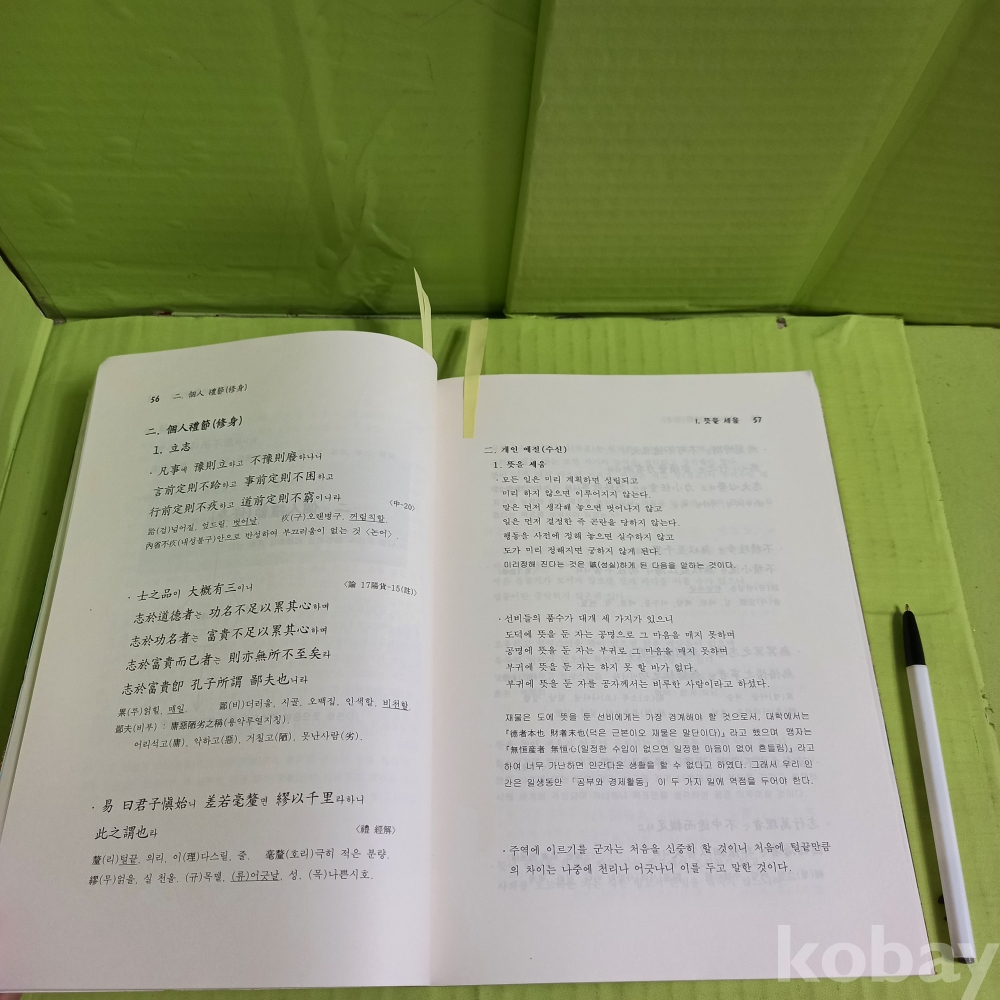 56 二. 個人 禮節(修身)
二. 個人禮節(修身)
1. 立志
· 凡事에 豫則立하고 不豫則廢하나니
言前定則不跲하고 事前定則不困하고
行前定則不疚하고 道前定則不窮이니라 〈中-20〉
跲(겁)넘어질, 엎드릴, 벗어날 疚(구)오랜병구, 꺼림직할.
內省不疚(내성불구)안으로 반성하여 부끄러움이 없는 것 〈논어〉
· 士之品이 大概有三이니 〈論 17陽貨-15(註)〉
志於道德者는 功名不足以累其心하며
志於功名者는 富貴不足以累其心하며
志於富貴而已者는 則亦無所不至矣라
志於富貴卽 孔子所謂 鄙夫也니라
累(루)얽힐, 매일. 鄙(비)더러울, 시골, 오백집, 인색할, 비천할
鄙夫(비부) : 庸惡陋劣之稱(용악루열지칭).
어리석고(庸), 악하고(惡), 거칠고(陋), 못난사람(劣).
· 易 曰君子愼始니 差若毫釐면 繆以千里라하니
此之謂也라 〈禮 經解〉
釐(리)털끝, 의리, 이(理)다스릴, 줄. 毫釐(호리)극히 적은 분량,
繆(무)얽을, 실 천올, (규)목맬, (류)어긋날, 성, (목)나쁜시호.
1. 뜻을 세움 57
二. 개인 예절(수신)
1. 뜻을 세움
· 모든 일은 미리 계획하면 성립되고
미리 하지 않으면 이루어지지 않는다.
말은 먼저 생각해 놓으면 벗어나지 않고
일은 먼저 결정한 즉 곤란을 당하지 않는다.
행동을 사전에 정해 놓으면 실수하지 않고
도가 미리 정해지면 궁하지 않게 된다.
미리정해 진다는 것은 誠(성실)하게 된 다음을 말하는 것이다.
· 선비들의 품수가 대개 세 가지가 있으니
도덕에 뜻을 둔 자는 공명으로 그 마음을 매지 못하며
공명에 뜻을 둔 자는 부귀로 그 마음을 매지 못하며
부귀에 뜻을 둔 자는 하지 못 할 바가 없다.
부귀에 뜻을 둔 자를 공자께서는 비루한 사람이라고 하셨다.
재물은 도에 뜻을 둔 선비에게는 가장 경계해야 할 것으로서, 대학에서는
『德者本也 財者末也(덕은 근본이오 재물은 말단이다)』라고 했으며 맹자는
『無恒産者 無恒心(일정한 수입이 없으면 일정한 마음이 없어 흔들림)』라고
하여 너무 가난하면 인간다운 생활을 할 수 없다고 하였다. 그래서 우리 인
간은 일생동안 「공부와 경제활동」 이 두 가지 일에 역점을 두어야 한다.
· 주역에 이르기를 군자는 처음을 신중히 할 것이니 처음에 털끝만큼
의 차이는 나중에 천리나 어긋나니 이를 두고 말한 것이다.
kobay